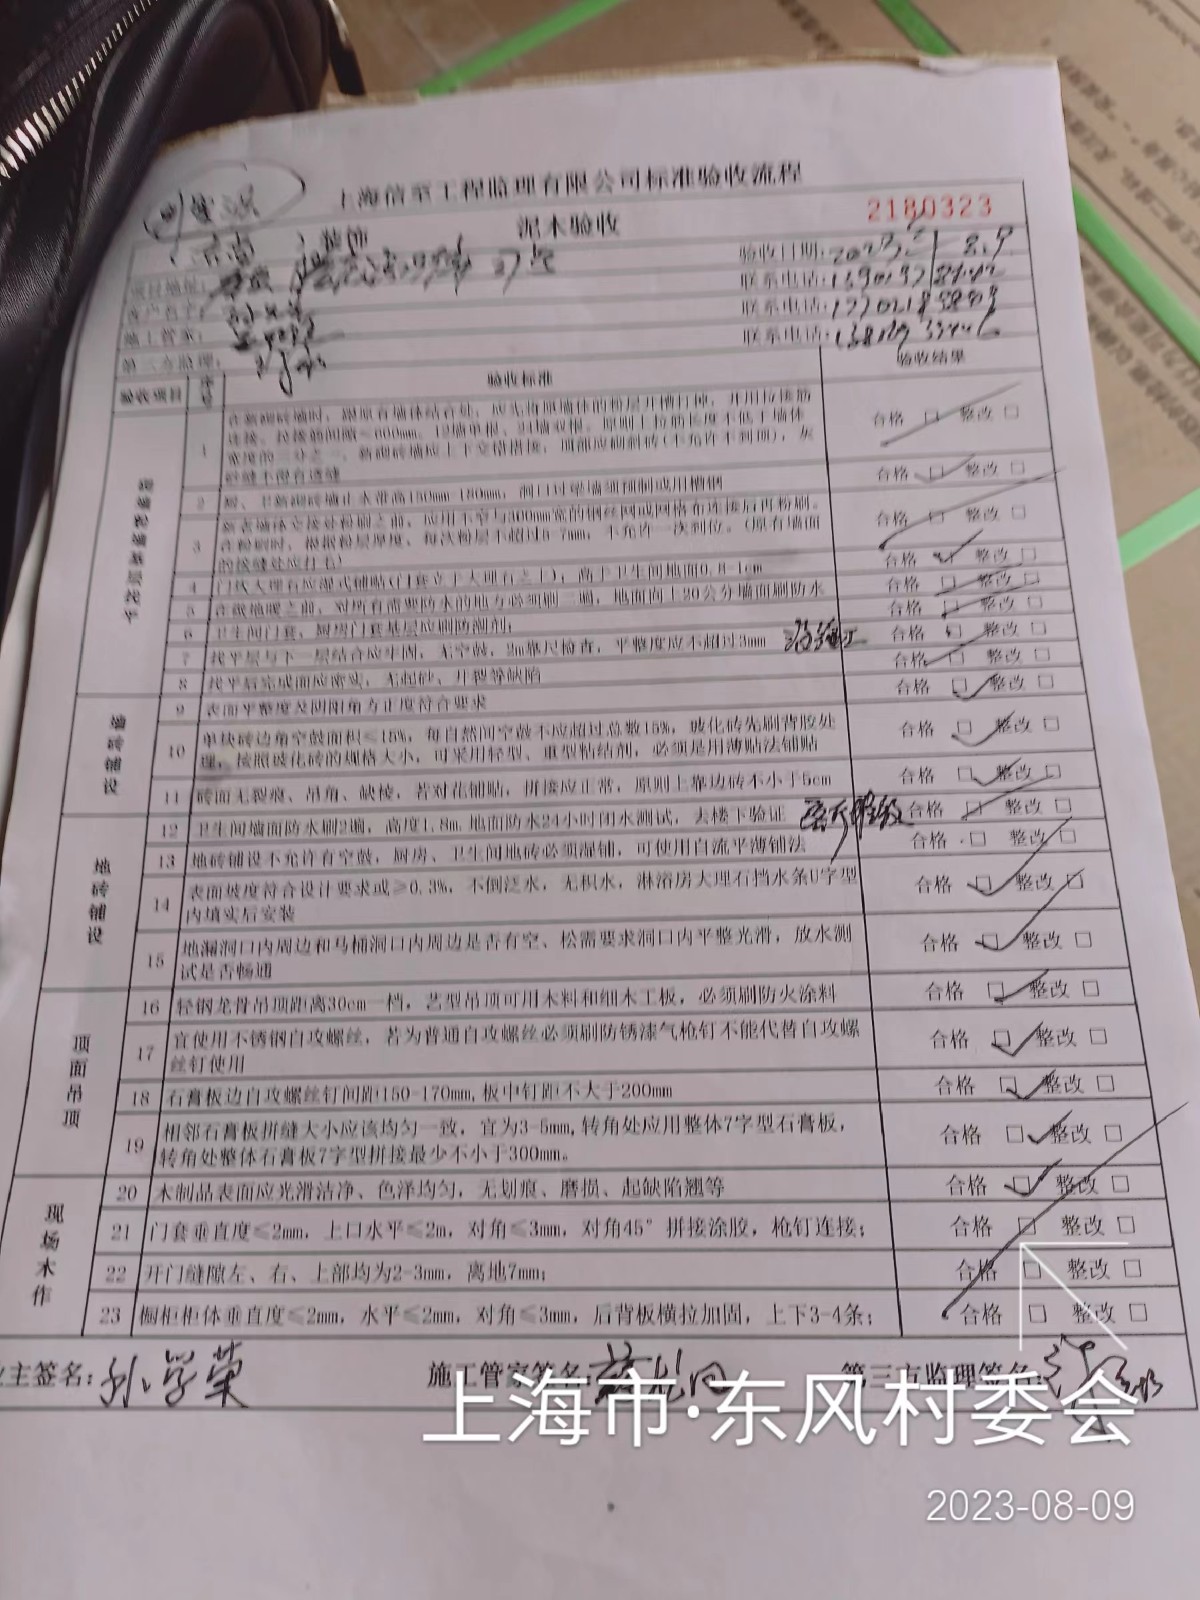 上海信至工程监理有限公司标准验收流程
泥木验收
2180323
装饰
验收日期: 8.9
项目地址:
联系电话:
客户名字:
联系电话:
施工管家:
联系电话:
第三方监理:
验收项目 验收标准 验收结果
1 在新砌砖墙时，跟原有墙体结合处，应先将原墙体的粉层开槽打掉，并用拉接筋
连接，拉接筋间隙≤600mm，12墙单根，24墙双根。原则上拉筋长度不低于墙体
宽度的三分之一，新砌砖墙应上下交错搭接，顶部应砌斜砖(不允许不到顶)，灰
砂缝不得有透缝
合格 □ 整改 □
2 厨、卫新砌砖墙止水带高150mm-180mm，洞口过梁墙须预制或用槽钢
合格 □ 整改 □
3 新老墙体交接处粉刷之前，应用不窄与300mm宽的钢丝网或网格布连接后再粉刷。
在粉刷时，根据粉层厚度，每次粉层不超过5-7mm，不允许一次到位。(原有墙面
的接缝处应打毛)
合格 □ 整改 □
4 门坎大理石应湿式铺贴(门套立于大理石之上)，高于卫生间地面0.8-1cm
合格 □ 整改 □
5 在做地暖之前，对所有需要防水的地方必须刷二遍，地面向上20公分墙面刷防水
合格 □ 整改 □
6 卫生间门套、厨房门套基层应刷防潮剂;
合格 □ 整改 □
7 找平层与下一层结合应牢固，无空鼓，2m靠尺检查，平整度应不超过3mm
合格 □ 整改 □
8 找平后完成面应密实，无起砂、开裂等缺陷
合格 □ 整改 □
墙砖铺设
9 表面平整度及阴阳角方正度符合要求
合格 □ 整改 □
10 单块砖边角空鼓面积≤15%，每自然间空鼓不应超过总数15%，玻化砖先刷背胶处
理，按照玻化砖的规格大小，可采用轻型、重型粘结剂，必须是用薄贴法铺贴
合格 □ 整改 □
11 砖面无裂痕、吊角、缺棱，若对花铺贴，拼接应正常，原则上靠边砖不小于5cm
合格 □ 整改 □
地砖铺设
12 卫生间墙面防水刷2遍，高度1.8m，地面防水24小时闭水测试，去楼下验证
合格 □ 整改 □
13 地砖铺设不允许有空鼓，厨房、卫生间地砖必须湿铺，可使用自流平薄铺法
合格 □ 整改 □
14 表面坡度符合设计要求或≥0.3%，不倒泛水，无积水，淋浴房大理石挡水条U字型
内填实后安装
合格 □ 整改 □
15 地漏洞口内周边和马桶洞口内周边是否有空、松需要求洞口内平整光滑，放水测
试是否畅通
合格 □ 整改 □
顶面吊顶
16 轻钢龙骨吊顶距离30cm一档，艺型吊顶可用木料和细木工板，必须刷防火涂料
合格 □ 整改 □
17 宜使用不锈钢自攻螺丝，若为普通自攻螺丝必须刷防锈漆气枪钉不能代替自攻螺
丝钉使用
合格 □ 整改 □
18 石膏板边自攻螺丝钉间距150-170mm,板中钉距不大于200mm
合格 □ 整改 □
19 相邻石膏板拼缝大小应该均匀一致，宜为3-5mm,转角处应用整体7字型石膏板，
转角处整体石膏板7字型拼接最少不小于300mm。
合格 □ 整改 □
现场木作
20 木制品表面应光滑洁净、色泽均匀，无划痕、磨损、起缺陷翘等
合格 □ 整改 □
21 门套垂直度≤2mm，上口水平≤2m，对角≤3mm，对角45°拼接涂胶，枪钉连接;
合格 □ 整改 □
22 开门缝隙左、右、上部均为2-3mm，离地7mm;
合格 □ 整改 □
23 橱柜柜体垂直度≤2mm，水平≤2mm，对角≤3mm，后背板横拉加固，上下3-4条;
合格 □ 整改 □
业主签名:孙学荣 施工管家签名: 第三方监理签名:
上海市·东风村委会
2023-08-09